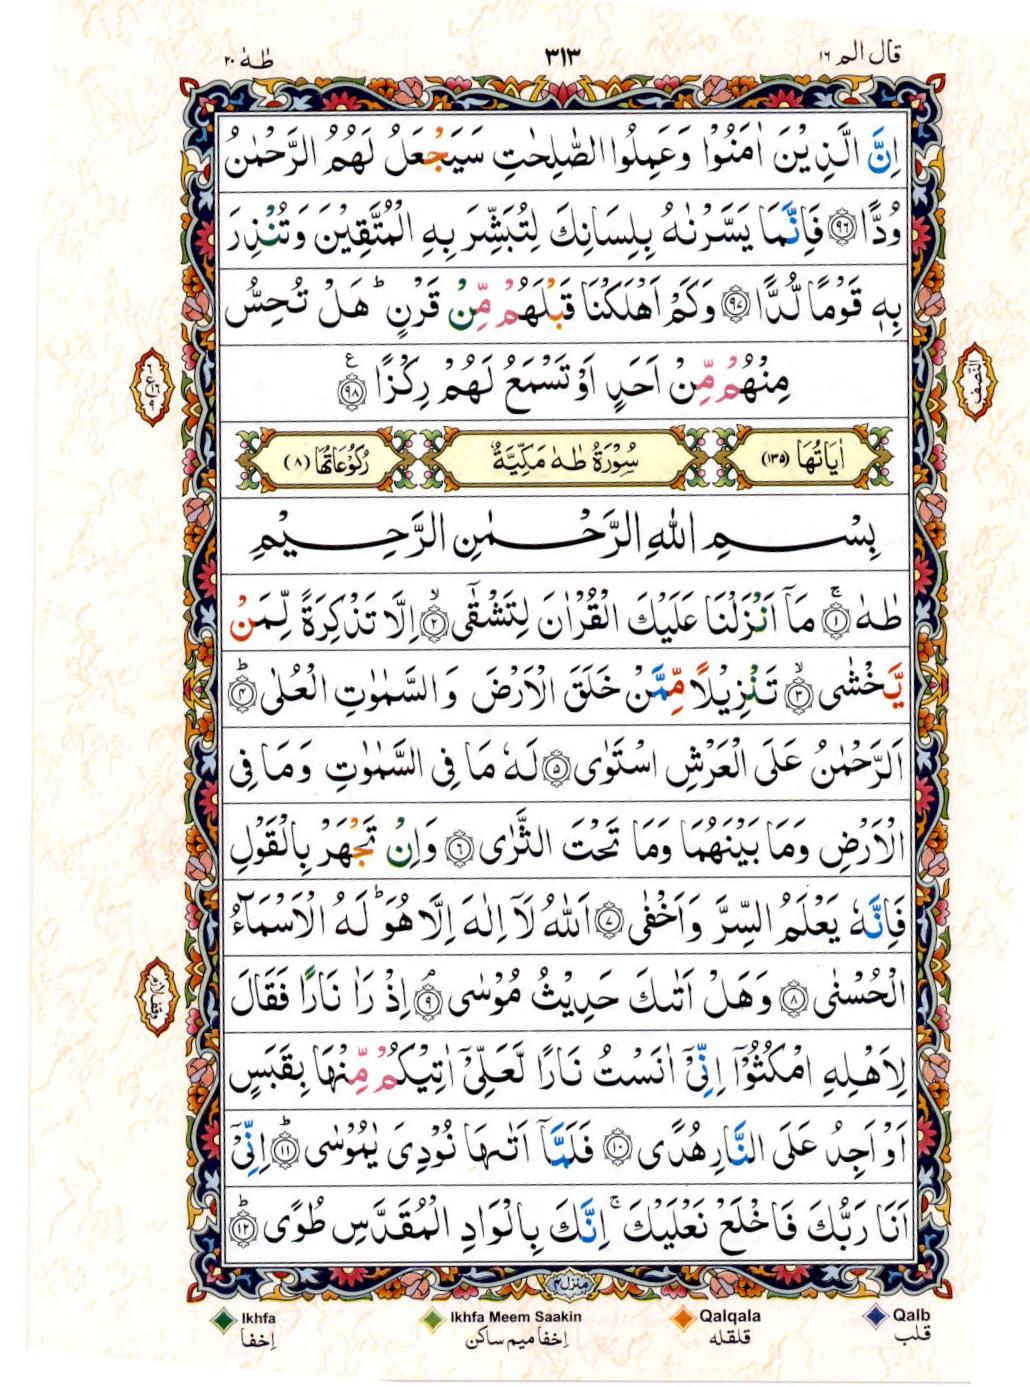 قال الم ١٦
٣١٣
طٰهٰ ٢٠
اِنَّ الَّذِيْنَ اٰمَنُوْا وَعَمِلُوا الصّٰلِحٰتِ سَيَجْعَلُ لَهُمُ الرَّحْمٰنُ
وُدًّا ﴿٩٦﴾ فَاِنَّمَا يَسَّرْنٰهُ بِلِسَانِكَ لِتُبَشِّرَ بِهِ الْمُتَّقِيْنَ وَتُنْذِرَ
بِهٖ قَوْمًا لُّدًّا ﴿٩٧﴾ وَكَمْ اَهْلَكْنَا قَبْلَهُمْ مِّنْ قَرْنٍ ؕ هَلْ تُحِسُّ
مِنْهُمْ مِّنْ اَحَدٍ اَوْ تَسْمَعُ لَهُمْ رِكْزًا ﴿٩٨﴾ ع
النّصف
اٰيَاتُهَا (١٣٥)
سُوْرَةُ طٰهٰ مَكِّيَّةٌ
رُكُوْعَاتُهَا (٨)
بِسْمِ اللّٰهِ الرَّحْمٰنِ الرَّحِيْمِ
طٰهٰ ﴿١﴾ ۚ مَاۤ اَنْزَلْنَا عَلَيْكَ الْقُرْاٰنَ لِتَشْقٰۤى ﴿٢﴾ ۙ اِلَّا تَذْكِرَةً لِّمَنْ
يَّخْشٰى ﴿٣﴾ ۙ تَنْزِيْلًا مِّمَّنْ خَلَقَ الْاَرْضَ وَالسَّمٰوٰتِ الْعُلٰى ﴿٤﴾ ؕ
اَلرَّحْمٰنُ عَلَى الْعَرْشِ اسْتَوٰى ﴿٥﴾ لَهٗ مَا فِى السَّمٰوٰتِ وَمَا فِى
الْاَرْضِ وَمَا بَيْنَهُمَا وَمَا تَحْتَ الثَّرٰى ﴿٦﴾ وَاِنْ تَجْهَرْ بِالْقَوْلِ
فَاِنَّهٗ يَعْلَمُ السِّرَّ وَاَخْفٰى ﴿٧﴾ اَللّٰهُ لَاۤ اِلٰهَ اِلَّا هُوَ ؕ لَهُ الْاَسْمَآءُ
الْحُسْنٰى ﴿٨﴾ وَهَلْ اَتٰىكَ حَدِيْثُ مُوْسٰى ﴿٩﴾ ۘ اِذْ رَاٰ نَارًا فَقَالَ
لِاَهْلِهِ امْكُثُوْۤا اِنِّىْۤ اٰنَسْتُ نَارًا لَّعَلِّىْۤ اٰتِيْكُمْ مِّنْهَا بِقَبَسٍ
اَوْ اَجِدُ عَلَى النَّارِ هُدًى ﴿١٠﴾ فَلَمَّاۤ اَتٰىهَا نُوْدِىَ يٰمُوْسٰى ﴿١١﴾ ؕ اِنِّىْۤ
اَنَا رَبُّكَ فَاخْلَعْ نَعْلَيْكَ ۚ اِنَّكَ بِالْوَادِ الْمُقَدَّسِ طُوًى ﴿١٢﴾ ؕ
منزل ٤
Ikhfa
Ikhfa Meem Saakin
Qalqala
Qalb
اِخفا
اِخفا میم ساکن
قلقله
قلب